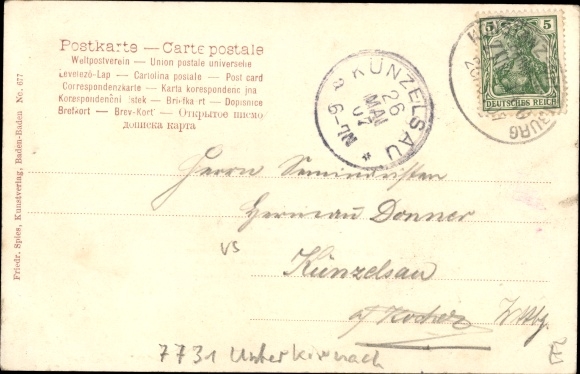 Postkarte — Carte postale
Weltpostverein — Union postale universelle
Levelező-Lap — Cartolina postale — Post card
Correspondenzkarte — Karta korespondencyjna
Korespondenční lístek — Briefkaart — Dopisnice
Brefkort — Brev-Kort — Открытое письмо
дописна карта
KÜNZELSAU
26
MAI
07
N. 6-7
5 5
DEUTSCHES REICH
BURG
Friedr. Spies, Kunstverlag, Baden-Baden No. 677
Herrn Seminaristen
Hermann Donner
VS
Künzelsau
a/ Kocher Wttbg.
7731 Unterkirnach
E